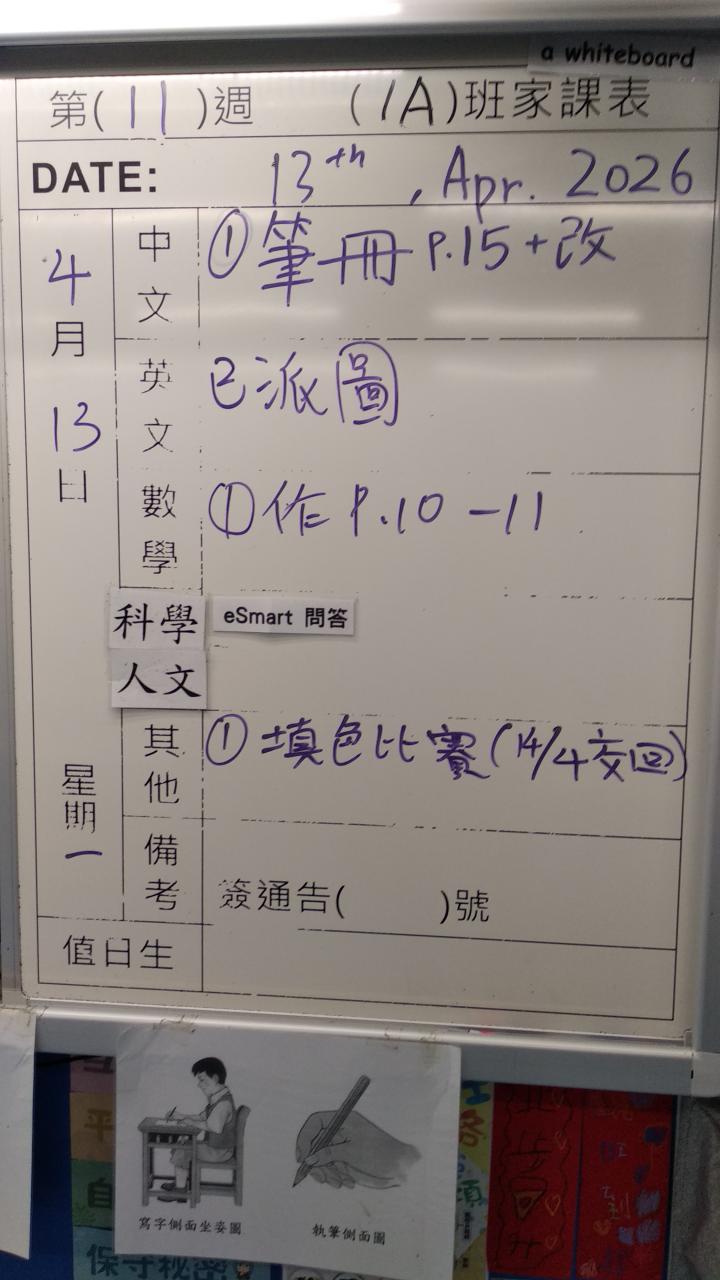 a whiteboard
第(11)週 (1A)班家課表
DATE: 13th, Apr. 2026
4月13日
星期一
中文 ①筆冊 P.15+改
英文 已派圖
數學 ①作 P.10-11
科學 eSmart 問答
人文
其他 ①填色比賽(14/4交回)
備考 簽通告( )號
值日生
寫字側面坐姿圖
執筆側面圖
平
自
保守秘密